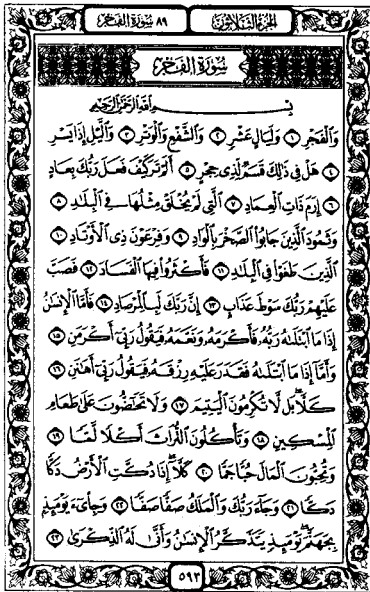 الجزء الثلاثون
٨٩ سورة الفجر
سورة الفجر
بسم الله الرحمن الرحيم
وَالْفَجْرِ ١ وَلَيَالٍ عَشْرٍ ٢ وَالشَّفْعِ وَالْوَتْرِ ٣ وَالَّيْلِ إِذَا يَسْرِ
٤ هَلْ فِي ذَٰلِكَ قَسَمٌ لِّذِي حِجْرٍ ٥ أَلَمْ تَرَ كَيْفَ فَعَلَ رَبُّكَ بِعَادٍ
٦ إِرَمَ ذَاتِ الْعِمَادِ ٧ الَّتِي لَمْ يُخْلَقْ مِثْلُهَا فِي الْبِلَادِ ٨
وَثَمُودَ الَّذِينَ جَابُوا الصَّخْرَ بِالْوَادِ ٩ وَفِرْعَوْنَ ذِي الْأَوْتَادِ ١٠
الَّذِينَ طَغَوْا فِي الْبِلَادِ ١١ فَأَكْثَرُوا فِيهَا الْفَسَادَ ١٢ فَصَبَّ
عَلَيْهِمْ رَبُّكَ سَوْطَ عَذَابٍ ١٣ إِنَّ رَبَّكَ لَبِالْمِرْصَادِ ١٤ فَأَمَّا الْإِنسَانُ
إِذَا مَا ابْتَلَاهُ رَبُّهُ فَأَكْرَمَهُ وَنَعَّمَهُ فَيَقُولُ رَبِّي أَكْرَمَنِ ١٥
وَأَمَّا إِذَا مَا ابْتَلَاهُ فَقَدَرَ عَلَيْهِ رِزْقَهُ فَيَقُولُ رَبِّي أَهَانَنِ ١٦
كَلَّا بَل لَّا تُكْرِمُونَ الْيَتِيمَ ١٧ وَلَا تَحَاضُّونَ عَلَىٰ طَعَامِ
الْمِسْكِينِ ١٨ وَتَأْكُلُونَ التُّرَاثَ أَكْلًا لَّمًّا ١٩
وَتُحِبُّونَ الْمَالَ حُبًّا جَمًّا ٢٠ كَلَّا إِذَا دُكَّتِ الْأَرْضُ دَكًّا
دَكًّا ٢١ وَجَاءَ رَبُّكَ وَالْمَلَكُ صَفًّا صَفًّا ٢٢ وَجِايءَ يَوْمَئِذٍ
بِجَهَنَّمَ يَوْمَئِذٍ يَتَذَكَّرُ الْإِنسَانُ وَأَنَّىٰ لَهُ الذِّكْرَىٰ ٢٣
٥٩٣